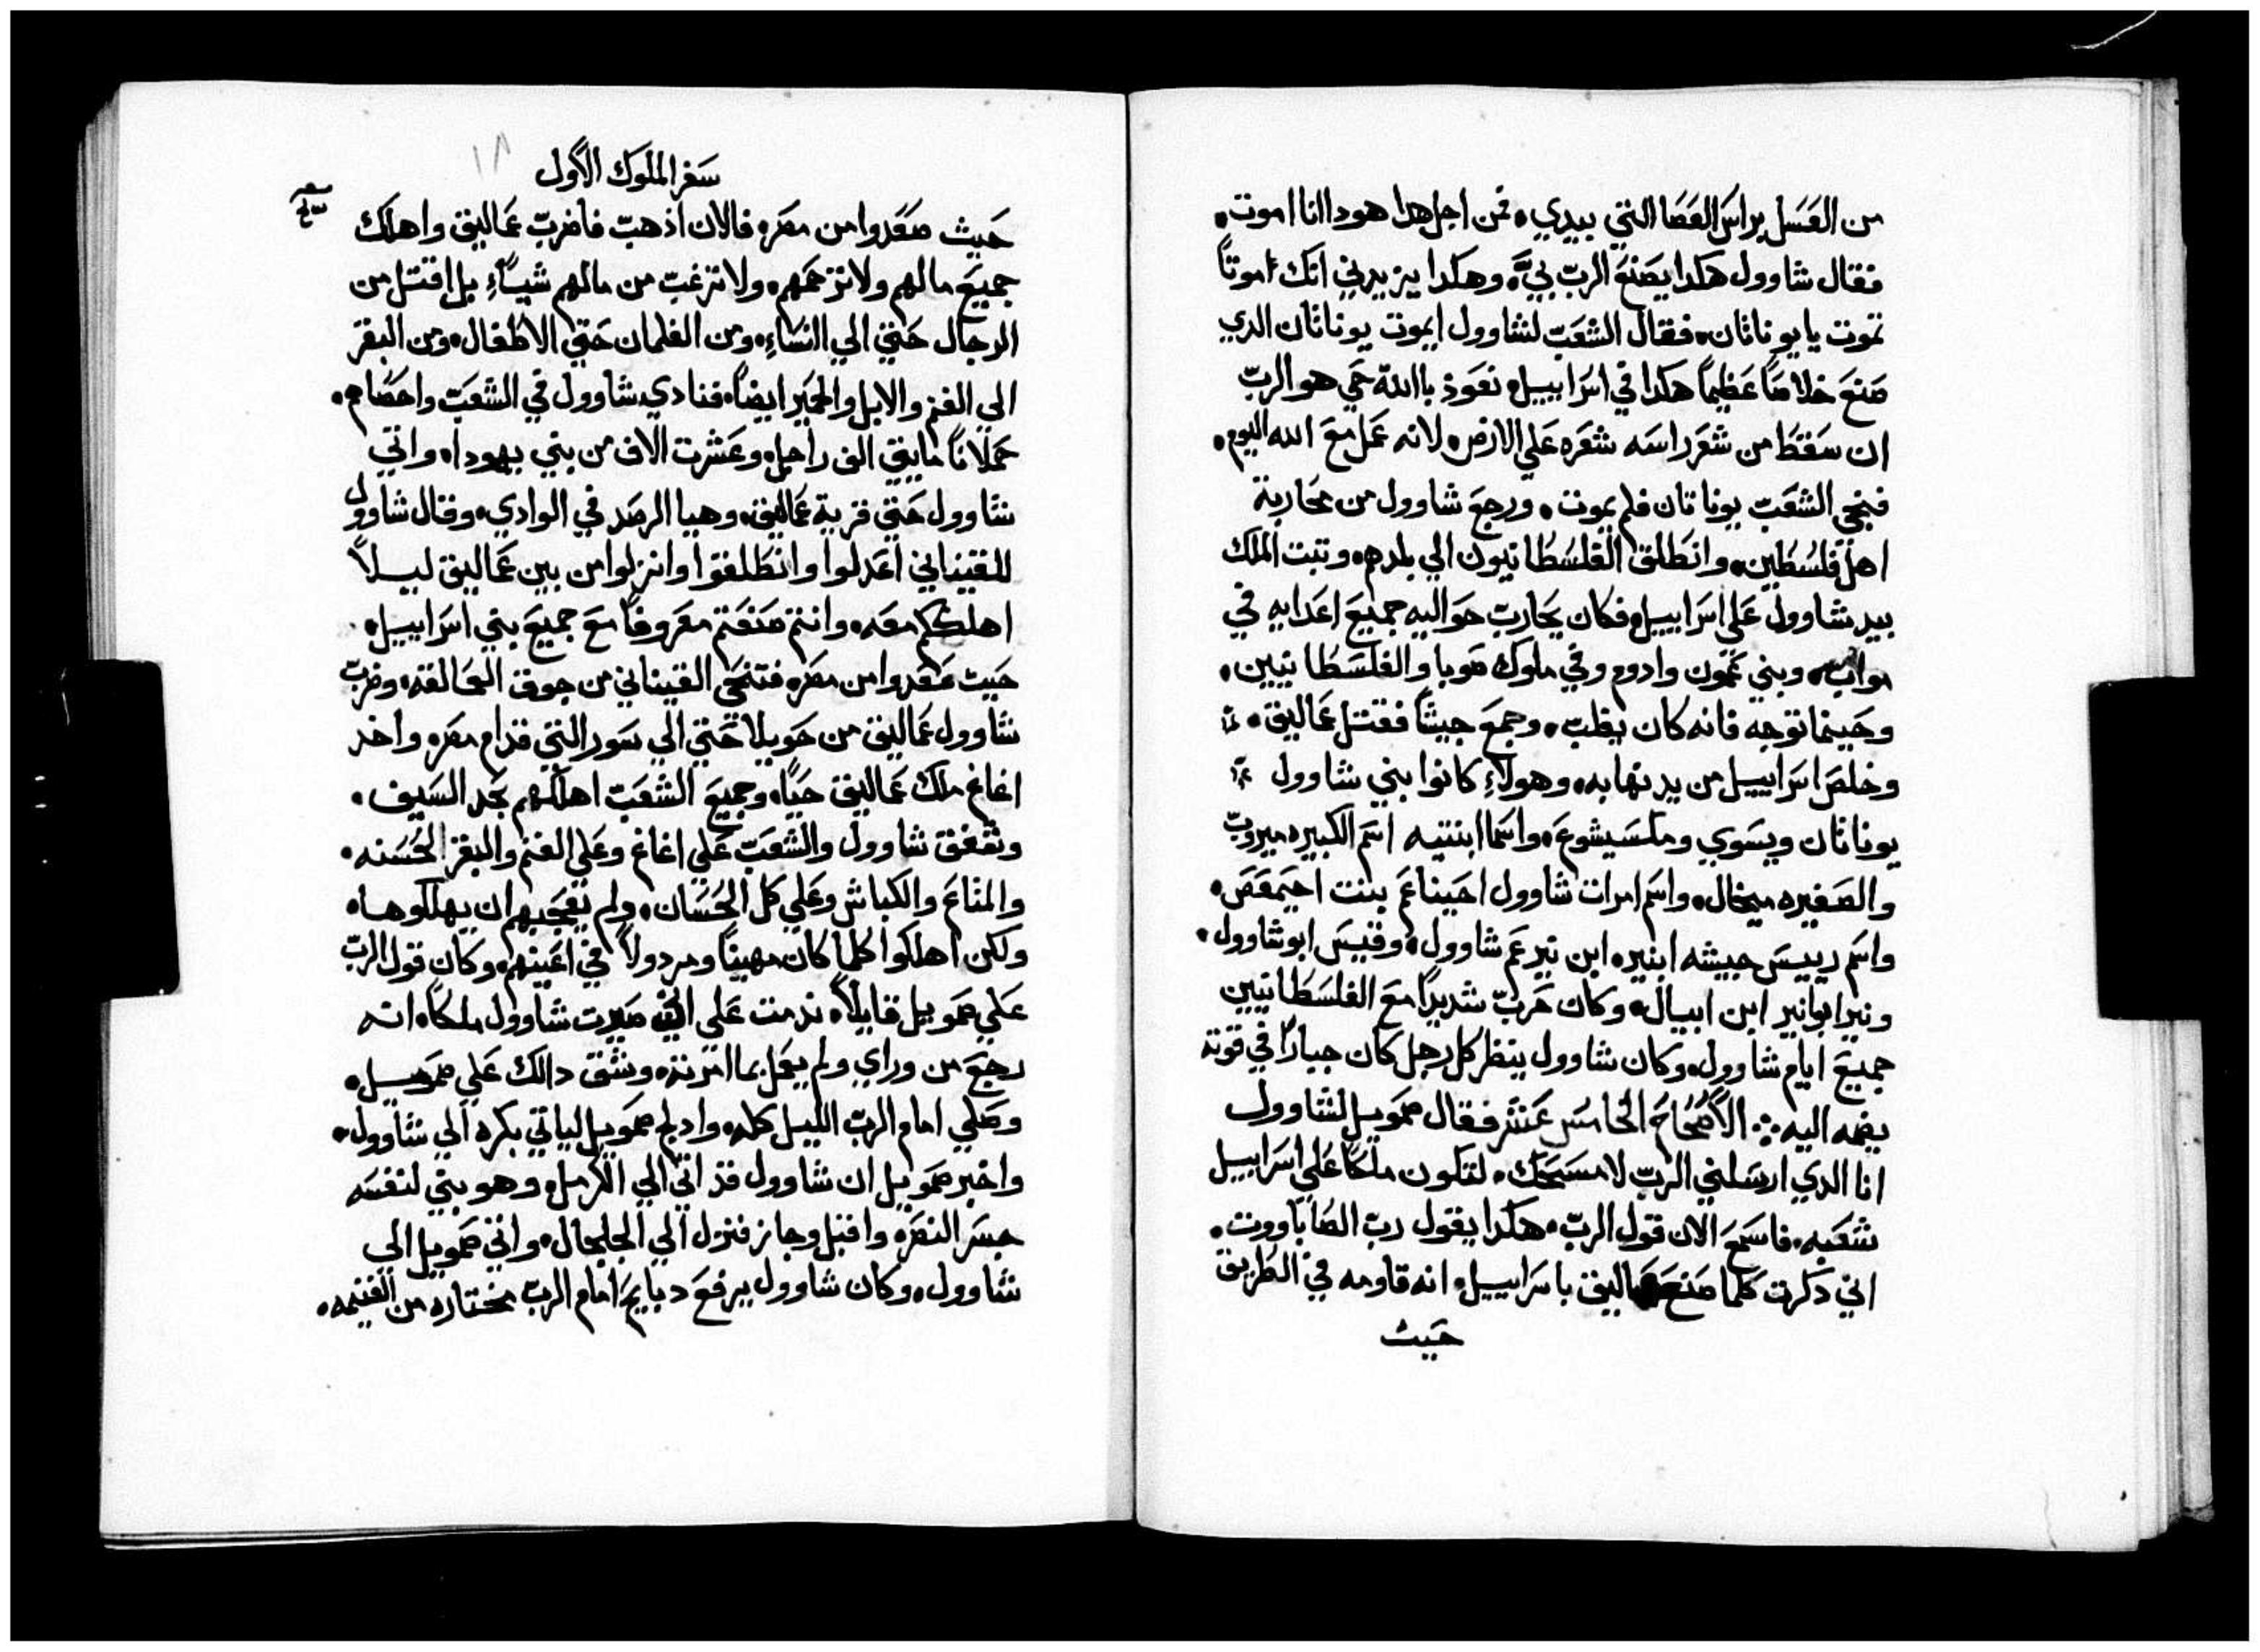 من العَسَل براس العَصَا التي بيدي. فمن اجل هدا هودا انا اموت.
فقال شاوول هَكدا يصَنعَ الربّ بيَّ. وهكدا يزيدني انك اموتاً
تموت يا يوناتان. فقال الشعَبّ لشاوول ايموت يوناتان الدي
صَنعَ خلاصَاً عَظيماً هكدا في اسَراييل. نعَوذ باالله حَي هو الربّ
ان سَقطَ من شعَر راسَه شعَره عَلي الارض. لانه عَمل معَ الله اليوم.
فنجي الشعَبّ يوناتان فلم يموت. ورجعَ شاوول من محَاربة
اهل فلسُطَين. وانطَلق الفلسُطَانيون الي بلدهم. وتبت الملك
بيد شاوول عَلي اسَراييل. فكان يحَاربّ حَواليه جميعَ اعَدايه في
موابّ. وبني عَمون وادوم وفي ملوك صَوبا والفلسَطَانيين.
وحَيتما توجه فانه كان يغلبّ. وجمعَ جيشاً فقتل عَماليق.
وخلصَ اسَراييل من يد نهابه. وهولاءِ كانوا بني شاوول
يوناتان ويسَوي وملسَيشوعَ. واسَما ابنتيه اسَم الكبيره ميروبّ
والصَغيره ميخال. واسَم امرات شاوول احَيناعَم بنت احَيمعَصَ.
واسَم رييسَ جيشه ابنير. ابن نير عَم شاوول. وقيسَ ابو شاوول.
ونير ابو انير ابن ابيال. وكان حَربّ شديداً معَ الفلسَطَانيين
جميعَ ايام شاوول. وكان شاوول ينظر كل رجل كان جباراً في قوته
يضمه اليه. الاَصُحَاحُ الخامسَ عَشر فقال صَمويل لشاوول
انا الدي ارسَلني الربّ لامسَحَك. لتكون ملكاً عَلي اسَراييل
شعَبه. فاسَمعَ الان قول الربّ. هكدا يقول ربّ الصَاباووت.
اني دكرت كلما صَنعَ عَماليق باسَراييل. انه قاومه في الطَريق
حَيت
سَفر الملوك الاَول
١٨
حَيث صَعَدوا من مصَر. فالان اذهبّ فاضربّ عَماليق واهلك
جميعَ مالهم ولا ترحَمهم. ولا ترغبّ من مالهم شيياًءِ بل اقتل من
الرجال حَتي الي النسَاءِ. ومن الغلمان حَتي الاطَفال. ومن البقر
الي الغنم والابل والحَمير ايضاً. فنادي شاوول في الشعَبّ واحَصَاهم.
حَملاناً مايتي الف راجل. وعَشرت الاف من بني يهودا. واتي
شاوول حَتي قرية عَماليق. وهيا الرصَد في الوادي. وقال شاوول
للقيناني اعَدلوا وانطَلقوا وانزلوا من بين عَماليق ليلاً
اهلككم معَه. وانتم صَنعَتم معَروفاً معَ جميعَ بني اسَراييل.
حَيت صَعَدوا من مصَر. فتنحَي القيناني من جوف العَمالقه. وضربّ
شاوول عَماليق من حَويلا حَتي الي سَور التي قدام مصَر. واخد
اغاغ ملك عَماليق حَياً. وجميعَ الشعَبّ اهلكهم بحَد السَيف.
وتعفق شاوول والشعَبّ عَلي اغاغ وعَلي الغنم والبقر الحَسَنه.
والمتاعَ والكباش وعَلي كل الحَسَان. ولم تعَجبهم ان يهلكوها.
ولكن اهلكوا كلما كان مهيناً ومردولاً في اعَينهم. وكان قول الربّ
عَلي صَمويل قايلاً. ندمت عَلي اني صَيرت شاوول ملكاً. انه
رجعَ من وراي ولم يعَمل بما امرته. وشق دالك عَلي صَمويل.
وصَلي امام الربّ الليل كله. وادلج صَمويل لياتي بكره الي شاوول.
واخبر صَمويل ان شاوول قد اتي الي الكرمل. وهو بني لنفسَه
جسَر النصَره واقبل وجاز فنزل الي الجلجال. واتي صَمويل الي
شاوول. وكان شاوول يرفعَ دبايحَ امام الربّ مختاره من الغنيمه.